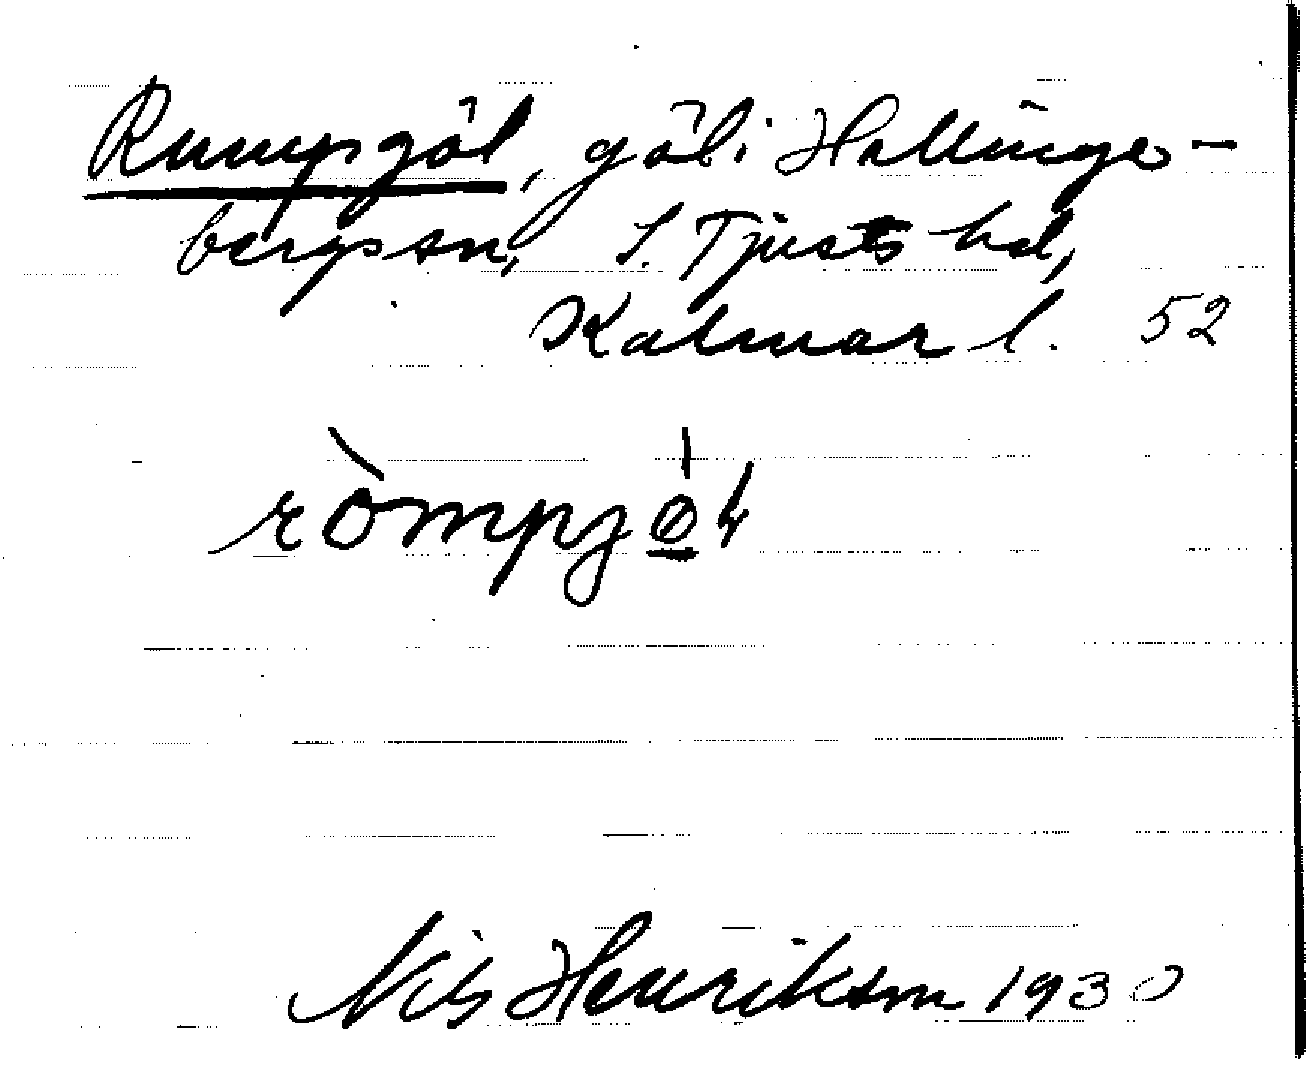 Rumpgöl, göl i Hallinge-
bergs sn, S. Tjusts hd,
Kalmar l. 52
ròmpgǿ̲ɫ
Nils Henrikson 1930